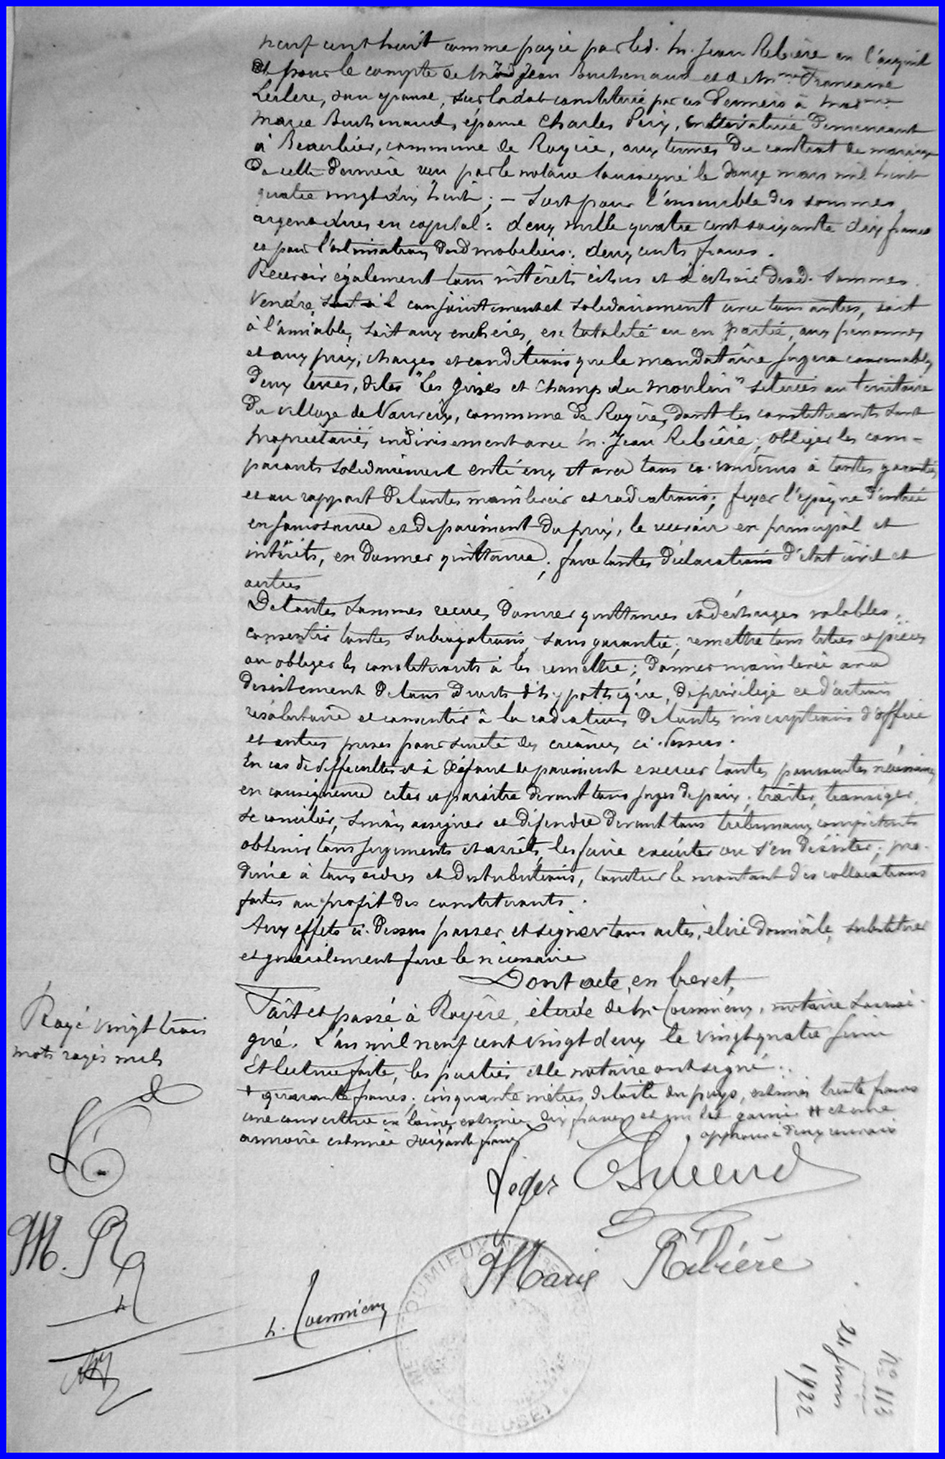 neuf cent huit comme payée par led. M. Jean Ribière en l'acquit
et pour le compte de M. Jean Buchenaud et de Mme Françoise
Leclerc, son épouse, sur la dot constituée par ces derniers à Madame
Marie Buchenaud, épouse Charles demeurant
à commune de Royère, aux termes du contrat de mariage
de cette dernière reçu par le notaire soussigné le douze mars mil huit
quatre vingt dix huit ; – Soit pour l'ensemble des sommes
argent dues en capital : deux mille quatre cent soixante dix francs
et pour l'estimation desd. mobiliers : deux cents francs.
Recevoir également tous intérêts échus et à échoir desd. sommes.
Vendre, soit conjointement et solidairement avec tous autres, soit
à l'amiable, soit aux enchères, en totalité ou en partie, aux personnes
et aux prix, charges et conditions que le mandataire jugera convenables
deux terres, dites "les et Champ du moulin" situées au territoire
du village de commune de Royère, dont les constituants sont
propriétaires indivisement avec M. Jean Ribière ; obliger les com-
parants solidairement entre eux et avec tous co-vendeurs à toutes garanties
et au rapport de toutes mainlevées et radiations ; fixer l'époque d'entrée
en jouissance et de paiement du prix, le recevoir en principal et
intérêts, en donner quittance ; faire toutes déclarations d'état civil et
autres
De toutes sommes reçues donner quittances et décharges valables,
consentir toutes subrogations sans garantie ; remettre tous titres et pièces
ou obliger les constituants à les remettre ; donner mainlevée avec
désistement de tous droits d'hypothèque, de privilège et d'action
résolutoire et consentir à la radiation de toutes inscriptions d'office
et autres prises pour sûreté des créances ci-dessus.
En cas de difficultés et à défaut de paiement exercer toutes poursuites nécessaires
en conséquence citer et paraître devant tous juges de paix ; traiter, transiger,
se concilier, sinon assigner et défendre devant tous tribunaux compétents
obtenir tous jugements et arrêts, les faire exécuter ou s'en désister ; pro-
duire à tous ordres et distributions, toucher le montant des collocations
faites au profit des constituants.
Aux effets ci-dessus passer et signer tous actes, élire domicile, substituer
et généralement faire le nécessaire
Dont acte, en brevet,
Fait et passé à Royère, étude de Me Coumieux, notaire soussi-
gné. L'an mil neuf cent vingt deux le vingt quatre juin
Et lecture faite, les parties et le notaire ont signé.
+ quarante francs ; cinquante mètres de toile du pays, estimés trente francs
une couverture en laine estimée dix francs et un lit garni et une
armoire estimée soixante francs
Rayé vingt trois
mots rayés nuls
M. R
Marie Ribière
L. Coumieux
(CREUSE)
No 113
24 juin
1922